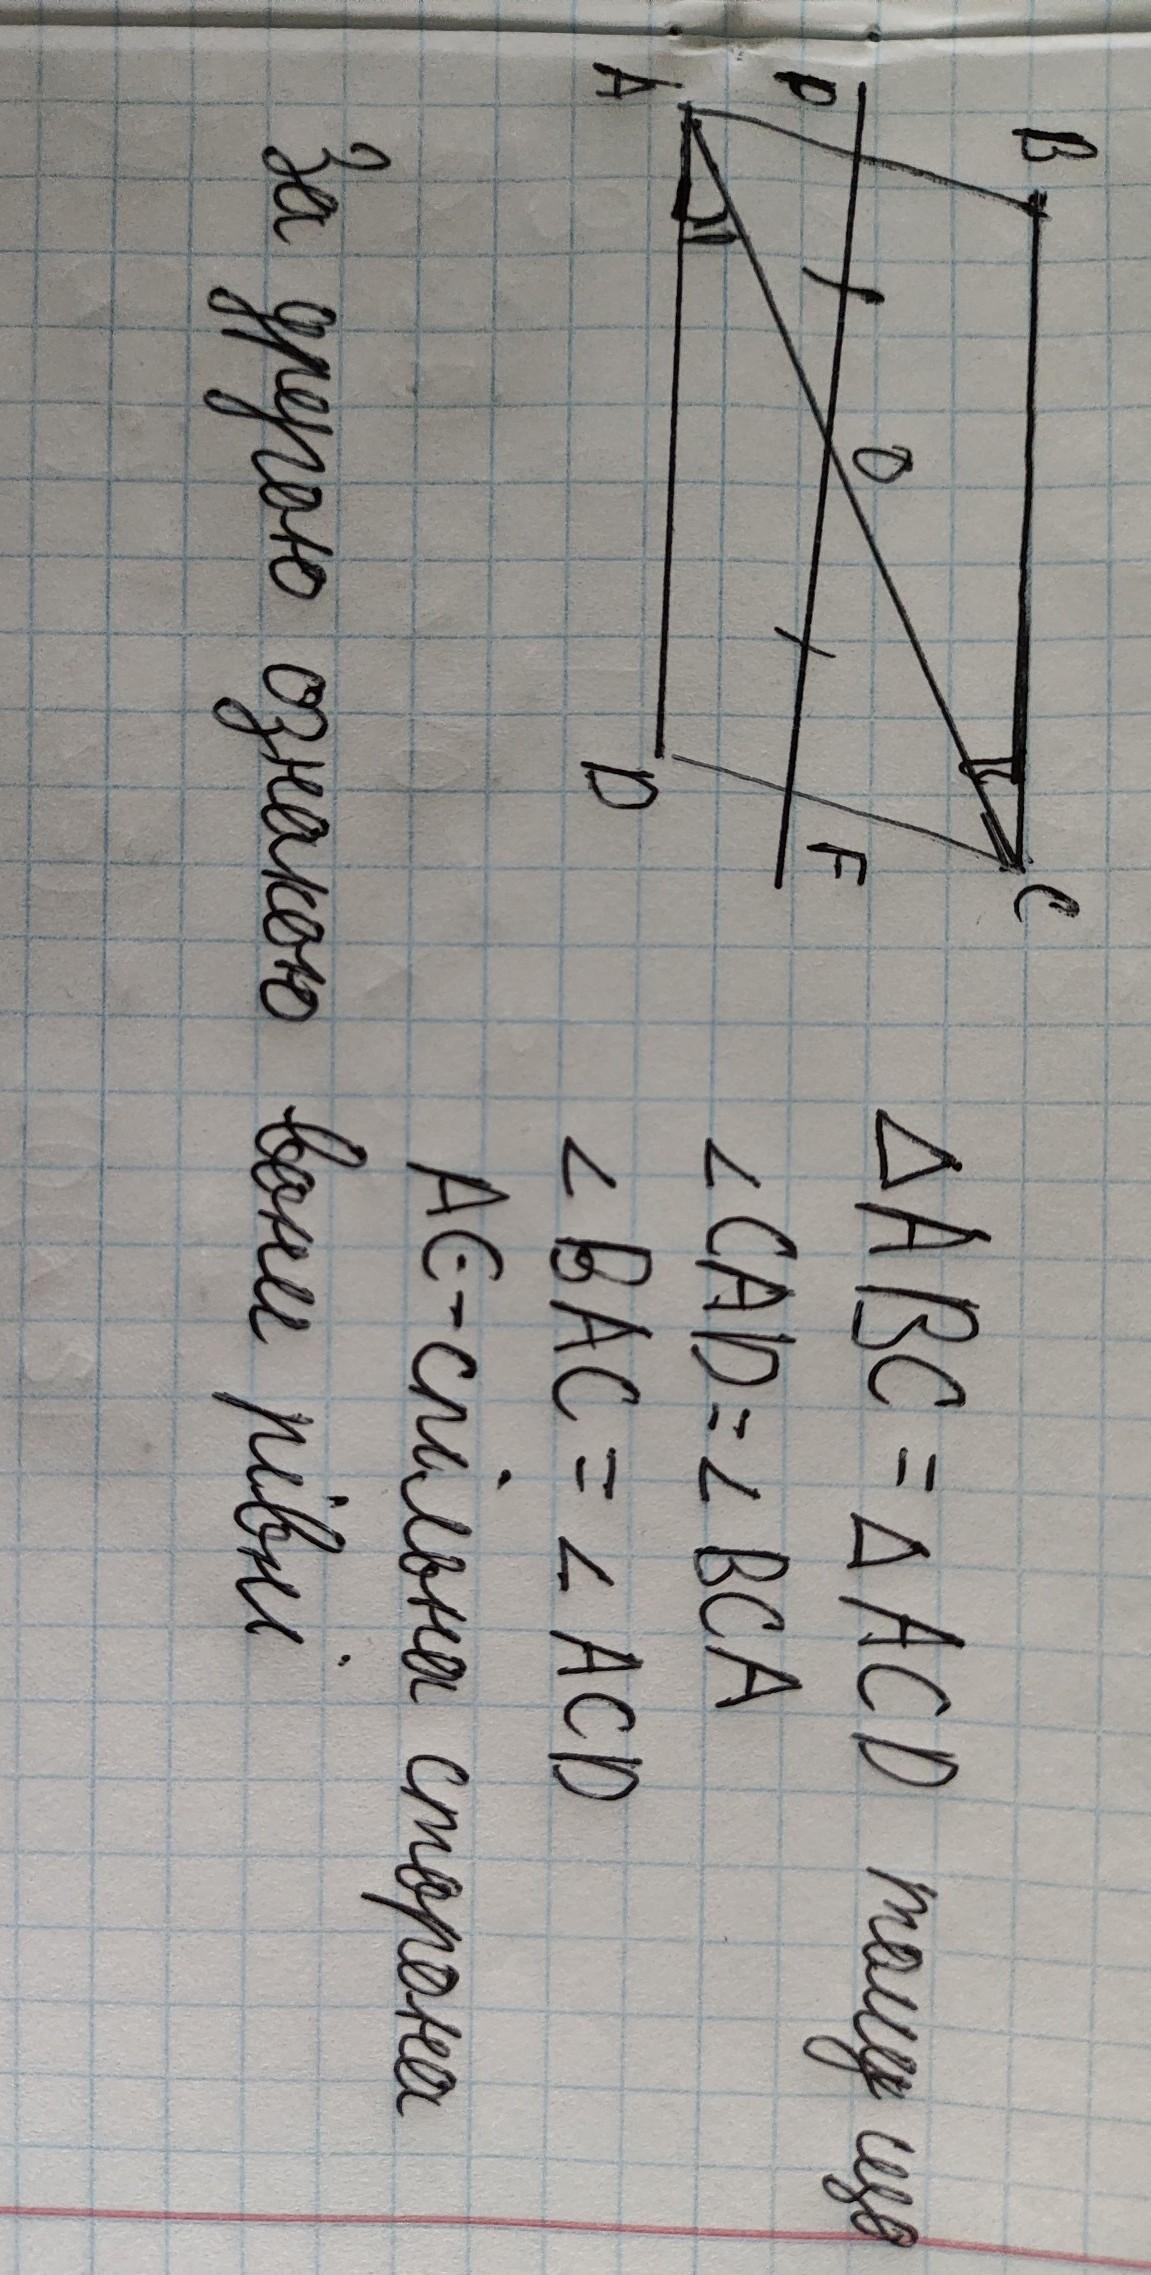 B
C
P
O
F
A
D
△ABC = △ACD тому що
∠CAD = ∠BCA
∠BAC = ∠ACD
AC - спільна сторона
За другою ознакою вони рівні.